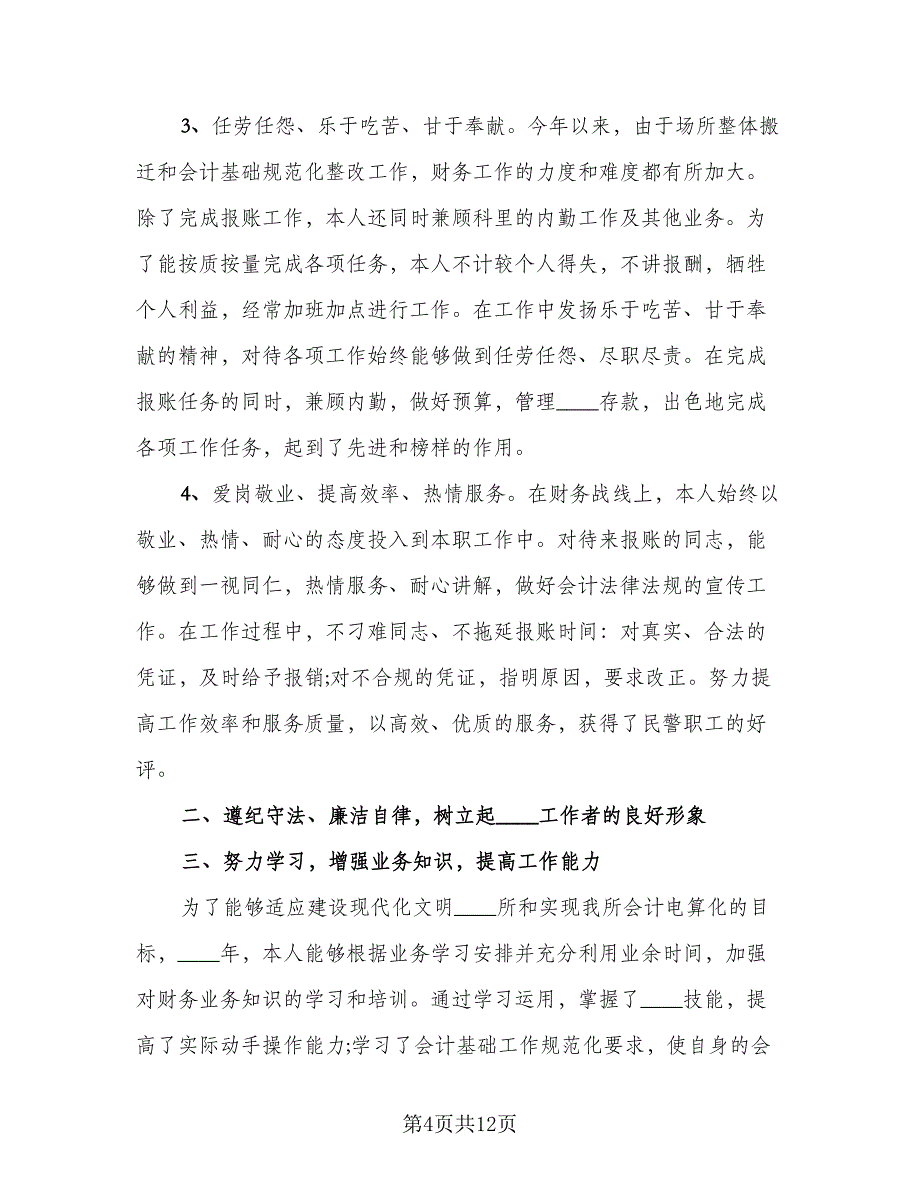 3、任劳任怨、乐于吃苦、甘于奉献。今年以来，由于场所整体搬
迁和会计基础规范化整改工作，财务工作的力度和难度都有所加大。
除了完成报账工作，本人还同时兼顾科里的内勤工作及其他业务。为
了能按质按量完成各项任务，本人不计较个人得失，不讲报酬，牺牲
个人利益，经常加班加点进行工作。在工作中发扬乐于吃苦、甘于奉
献的精神，对待各项工作始终能够做到任劳任怨、尽职尽责。在完成
报账任务的同时，兼顾内勤，做好预算，管理____存款，出色地完成
各项工作任务，起到了先进和榜样的作用。
4、爱岗敬业、提高效率、热情服务。在财务战线上，本人始终以
敬业、热情、耐心的态度投入到本职工作中。对待来报账的同志，能
够做到一视同仁，热情服务、耐心讲解，做好会计法律法规的宣传工
作。在工作过程中，不刁难同志、不拖延报账时间：对真实、合法的
凭证，及时给予报销;对不合规的凭证，指明原因，要求改正。努力提
高工作效率和服务质量，以高效、优质的服务，获得了民警职工的好
评。
二、遵纪守法、廉洁自律，树立起____工作者的良好形象
三、努力学习，增强业务知识，提高工作能力
为了能够适应建设现代化文明____所和实现我所会计电算化的目
标，____年，本人能够根据业务学习安排并充分利用业余时间，加强
对财务业务知识的学习和培训。通过学习运用，掌握了____技能，提
高了实际动手操作能力;学习了会计基础工作规范化要求，使自身的会
第4页共12页